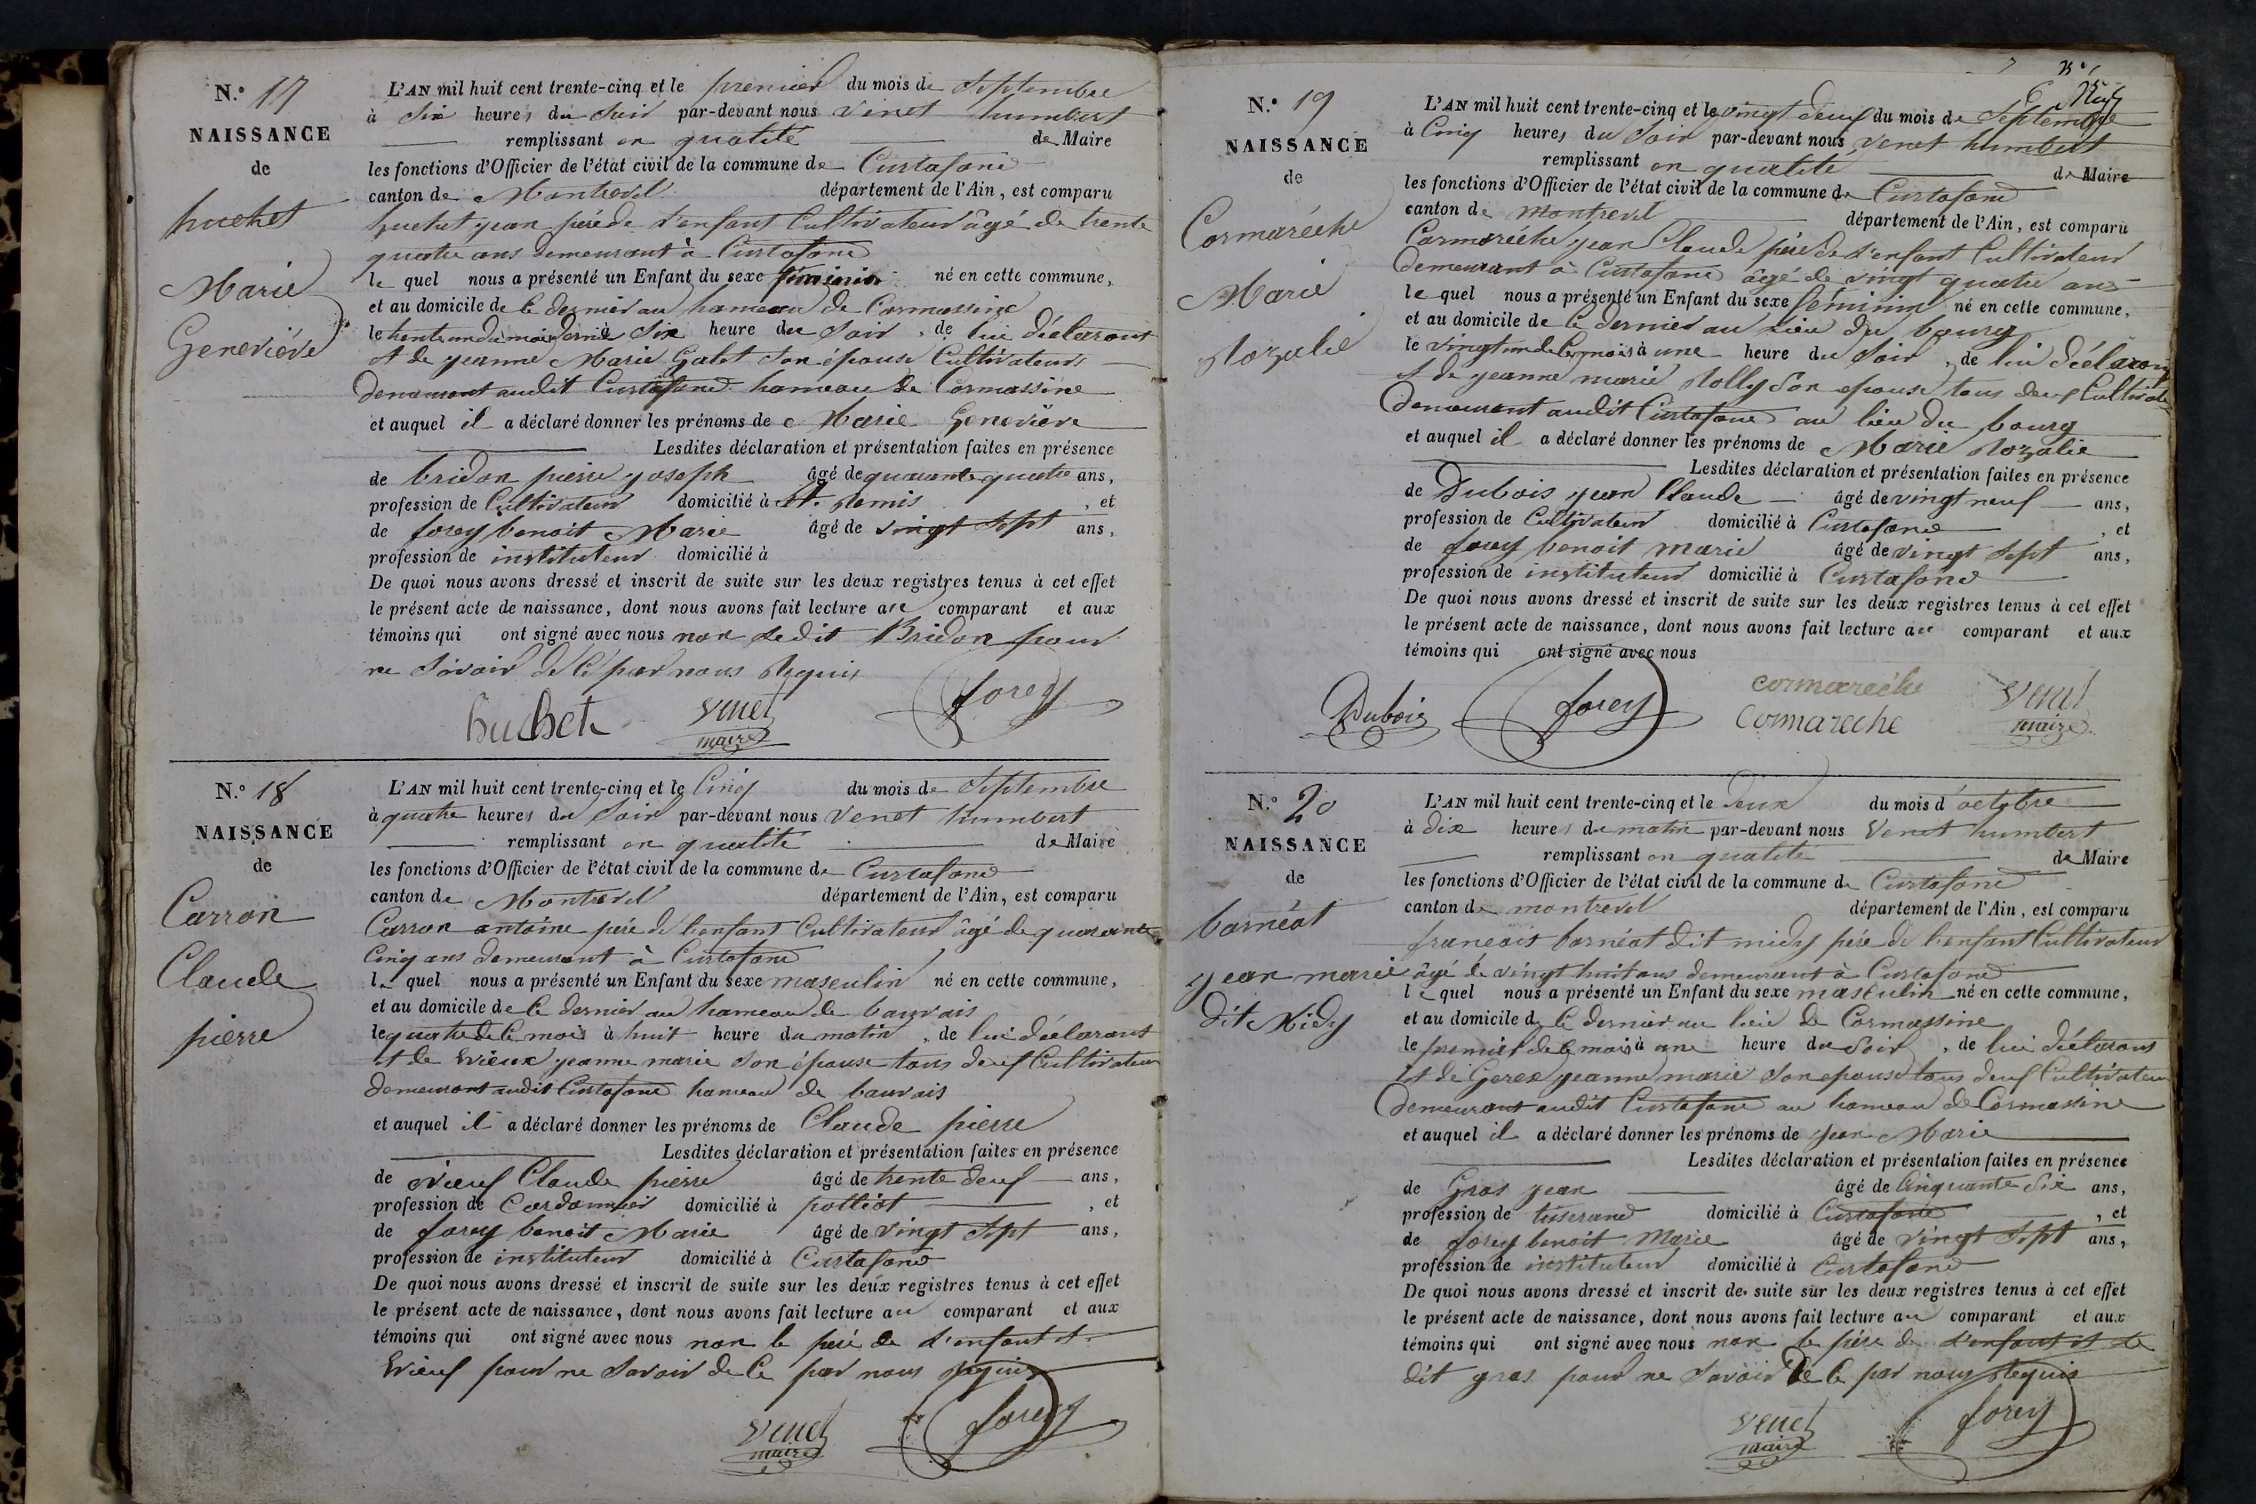 N.° 17
NAISSANCE
de
huchet
Marie
Geneviève
L'AN mil huit cent trente-cinq et le premier du mois de Septembre
à Six heures du Soir par-devant nous Venet humbert
remplissant en qualité de Maire
les fonctions d'Officier de l'état civil de la commune de Curtafond
canton de Montrevel département de l'Ain, est comparu
huchet jean père de l'enfant Cultivateur âgé de trente
quatre ans demeurant à Curtafond
le quel nous a présenté un Enfant du sexe féminin né en cette commune,
et au domicile de Ce dernier au hameau de Cormassine
le trente un du mois dernier à Six heure du Soir, de lui déclarant
et de jeanne Marie Galet Son épouse Cultivateurs
demeurant audit Curtafond hameau de Cormassine
et auquel il a déclaré donner les prénoms de Marie Geneviève
Lesdites déclaration et présentation faites en présence
de bridon pierre joseph âgé de quarante quatre ans,
profession de Cultivateur domicilié à St. Remis, et
de forey benoit Marie âgé de vingt Sept ans,
profession de instituteur domicilié à
De quoi nous avons dressé et inscrit de suite sur les deux registres tenus à cet effet
le présent acte de naissance, dont nous avons fait lecture au comparant et aux
témoins qui ont signé avec nous non Ledit Bridon pour
ne Savoir de Ce par nous Requis
huchet Venet maire forey
N.° 18
NAISSANCE
de
Carron
Claude
pierre
L'AN mil huit cent trente-cinq et le Cinq du mois de Septembre
à quatre heures du Soir par-devant nous Venet humbert
remplissant en qualité de Maire
les fonctions d'Officier de l'état civil de la commune de Curtafond
canton de Montrevel département de l'Ain, est comparu
Carron antoine père de l'enfant Cultivateur âgé de quarante
Cinq ans demeurant à Curtafond
le quel nous a présenté un Enfant du sexe masculin né en cette commune,
et au domicile de Ce dernier au hameau de bauvais
le quatre de Ce mois à huit heure du matin, de lui déclarant
et de Vrieux jeanne marie Son épouse tous deux Cultivateur
demeurant audit Curtafond hameau de bauvais
et auquel il a déclaré donner les prénoms de Claude pierre
Lesdites déclaration et présentation faites en présence
de Claude pierre âgé de trente deux ans,
profession de Cordonnier domicilié à polliat, et
de forey benoit Marie âgé de vingt Sept ans,
profession de instituteur domicilié à Curtafond
De quoi nous avons dressé et inscrit de suite sur les deux registres tenus à cet effet
le présent acte de naissance, dont nous avons fait lecture au comparant et aux
témoins qui ont signé avec nous non le père de l'enfant et
pour ne Savoir de Ce par nous Requis
Venet maire forey
6
N.° 19
NAISSANCE
de
Cormaréche
Marie
Rozalie
L'AN mil huit cent trente-cinq et le vingt deux du mois de Septembre
à Cinq heures du Soir par-devant nous Venet humbert
remplissant en qualité de Maire
les fonctions d'Officier de l'état civil de la commune de Curtafond
canton de montrevel département de l'Ain, est comparu
Cormaréche jean Claude père de l'enfant Cultivateur
demeurant à Curtafond âgé de vingt quatre ans
le quel nous a présenté un Enfant du sexe féminin né en cette commune,
et au domicile de Ce dernier au Lieu du bourg
le vingt un de Ce mois à une heure du Soir, de lui déclarant
et de jeanne marie Rolly Son epouse tous deux Cultivateur
demeurant audit Curtafond au lieu du bourg
et auquel il a déclaré donner les prénoms de Marie Rozalie
Lesdites déclaration et présentation faites en présence
de Dubois jean Claude âgé de vingt neuf ans,
profession de Cultivateur domicilié à Curtafond, et
de forey benoit marie âgé de vingt Sept ans,
profession de instituteur domicilié à Curtafond
De quoi nous avons dressé et inscrit de suite sur les deux registres tenus à cet effet
le présent acte de naissance, dont nous avons fait lecture au comparant et aux
témoins qui ont signé avec nous
Dubois forey cormaréche Venet maire
Cormareche
N.° 20
NAISSANCE
de
barnéat
jean marie
dit Midy
L'AN mil huit cent trente-cinq et le deux du mois d'octobre
à dix heures du matin par-devant nous Venet humbert
remplissant en qualité de Maire
les fonctions d'Officier de l'état civil de la commune de Curtafond
canton de montrevel département de l'Ain, est comparu
francois barnéat dit midy père de l'enfant Cultivateur
âgé de vingt huit ans demeurant à Curtafond
le quel nous a présenté un Enfant du sexe masculin né en cette commune,
et au domicile de Ce dernier au lieu de Cormassine
le premier de Ce mois à une heure du Soir, de lui déclarant
et de jeanne marie Son epouse tous deux Cultivateur
demeurant audit Curtafond au hameau de Cormassine
et auquel il a déclaré donner les prénoms de jean Marie
Lesdites déclaration et présentation faites en présence
de Gros jean âgé de Cinquante Six ans,
profession de tisserand domicilié à Curtafond, et
de forey benoit Marie âgé de vingt Sept ans,
profession de instituteur domicilié à Curtafond
De quoi nous avons dressé et inscrit de suite sur les deux registres tenus à cet effet
le présent acte de naissance, dont nous avons fait lecture au comparant et aux
témoins qui ont signé avec nous non le père de l'enfant et le
dit gros pour ne Savoir de Ce par nous Requis
Venet maire forey